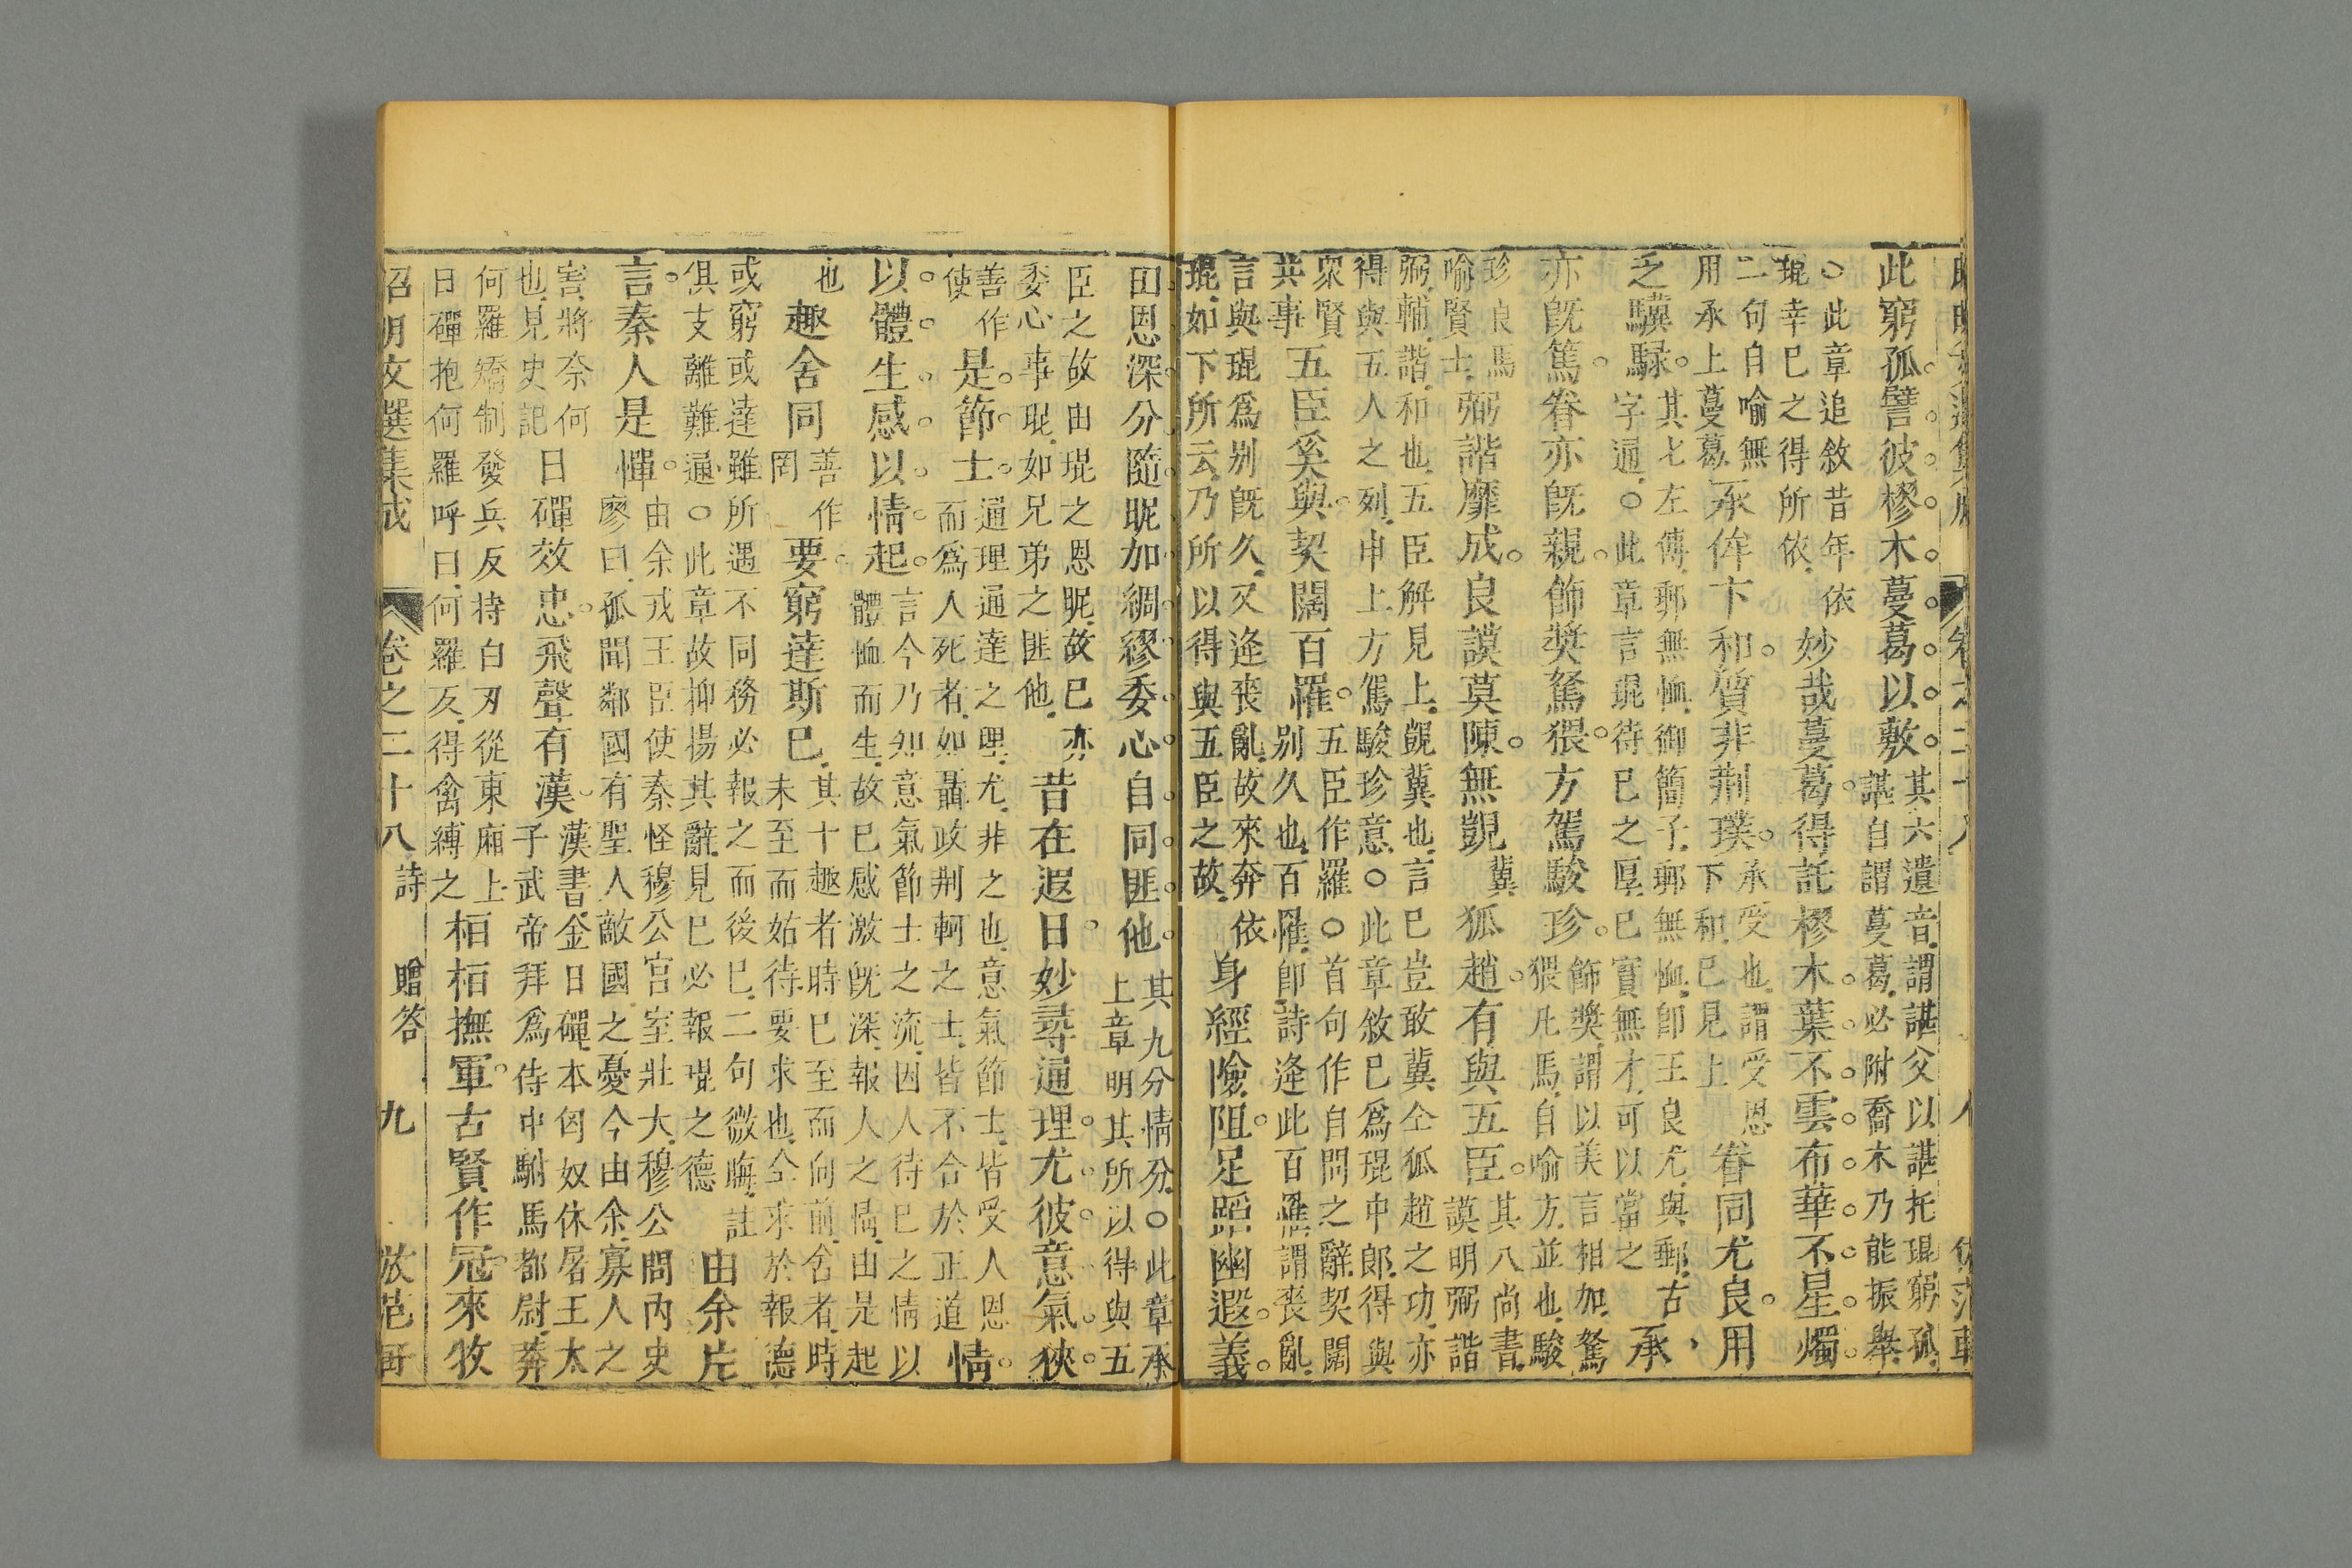 此窮孤譬彼樛木蔓葛以敷
其六遺音謂諶父以諶托琨窮孤
諶自謂蔓葛必附喬木乃能振舉
○此章追敘昔年依
琨幸已之得所依
妙哉蔓葛得託樛木葉不雲布華不星燭
二句自喻無
用承上蔓葛
承侔卞和質非荆璞
承受也謂受恩
下和已見上
眷同尤良用
乏驥騄
其七左傳郵無恤御簡子郵無恤卽王良尤與郵古
字通○此章言琨待已之厚已實無才可以當之
承
亦旣篤眷亦旣親飾獎駑猥方駕駿珍
飾獎謂以美言相加駑
猥凡馬自喻方並也駿
珍良馬
喻賢士
弼諧靡成良謨莫陳無覬
冀
狐趙有與五臣
其八尚書
謨明弼諧
弼輔諧和也五臣解見上覬冀也言已豈敢冀仝狐趙之功亦
得與五人之列申上方駕駿珍意○此章敘已爲琨中郎得與
衆賢
共事
五臣奚與契闊百罹
五臣作羅○首句作自問之辭契闊
别久也百罹卽詩逢此百罹謂喪亂
言與琨爲别旣久又逢喪亂故來奔依
琨如下所云乃所以得與五臣之故
身經險阻足蹈幽遐義
由恩深分隨昵加綢繆委心自同匪他
其九分情分○此章承
上章明其所以得與五
臣之故由琨之恩昵故已亦
委心事琨如兄弟之匪他
昔在遐日妙尋通理尤彼意氣狹
善作
使
是節士
通理通達之理尤非之也意氣節士皆受人恩
而爲人死者如聶政荆軻之士皆不合於正道
情
以體生感以情起
言今乃知意氣節士之流因人待已之情以
體恤而生故已感激旣深報人之情由是起
也
趣舍同
善作
罔
要窮達斯已
其十趣者時已至而向前舍者時
未至而姑待要求也仝求於報德
或窮或達雖所遇不同務必報之而後已二句微晦註
俱支離難通○此章故抑揚其辭見已必報琨之德
由余片
言秦人是憚
由余戎王臣使秦怪穆公宮室壯大穆公問內史
廖曰孤聞鄰國有聖人敵國之憂今由余寡人之
害將奈何
也見史記
日磾效忠飛聲有漢
漢書金日磾本匈奴休屠王太
子武帝拜爲侍中駙馬都尉莽
何羅矯制發兵反持白刃從東廂上
日磾抱何羅呼曰何羅反得禽縛之
桓桓撫軍古賢作冠來牧
昭明文選集成
卷之二十八詩 贈答
九
倣范軒